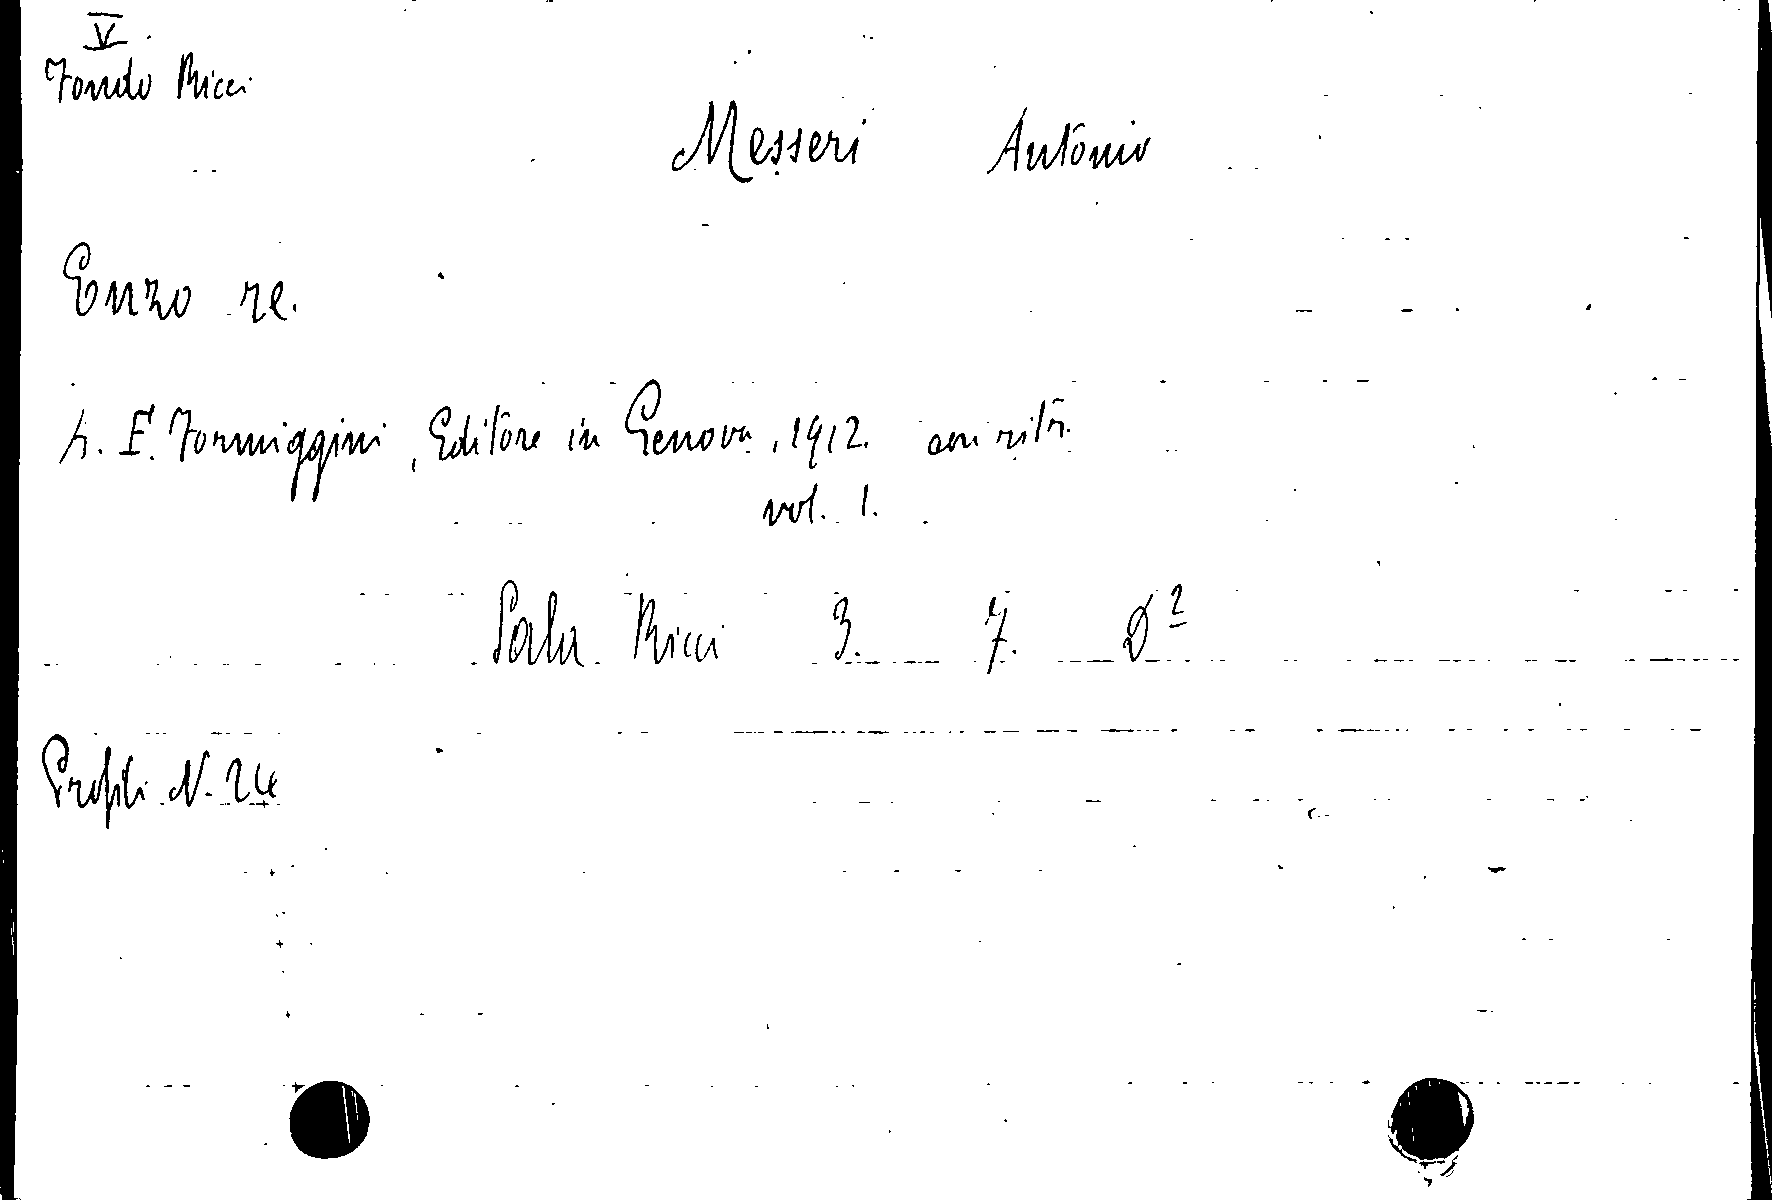 V
Fondo Ricci
Messeri Antonio
Enzo re.
A. F. Formiggini, Editore in Genova, 1912. con ritr.
vol. 1.
Sala Ricci 3. 7. D²
Profili N. 24